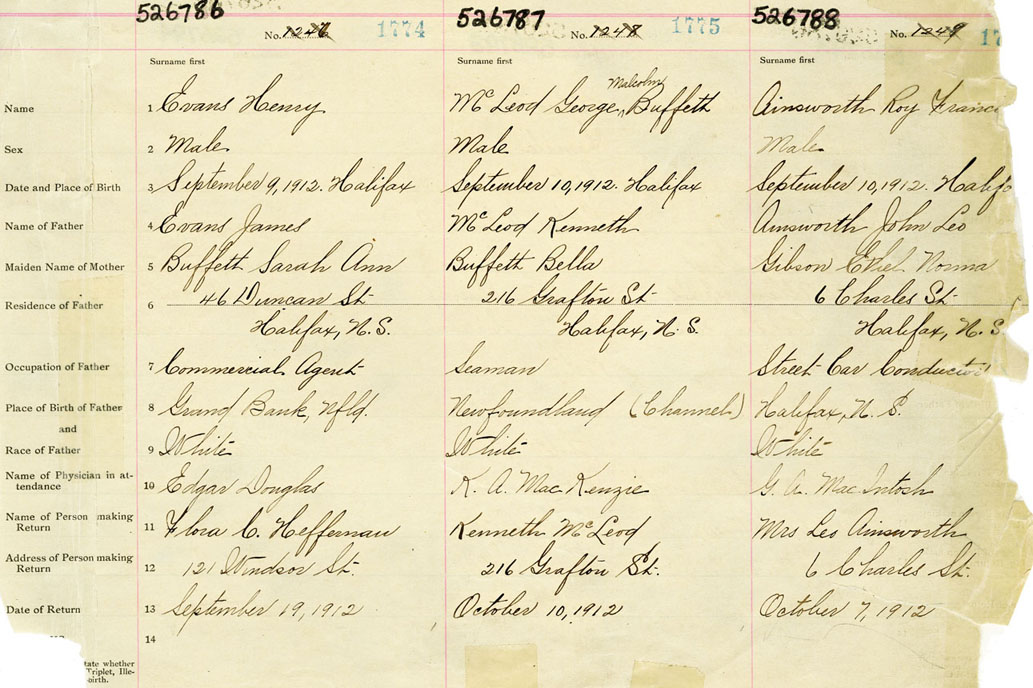 526786 526787 526788
No. 1246 1774 No. 1248 1775 No. 1249
Surname first Surname first Surname first
Name 1 Evans Henry Mc Leod George Malcolm Buffett Ainsworth Roy Franc
Sex 2 Male Male Male
Date and Place of Birth 3 September 9, 1912. Halifax September 10, 1912. Halifax September 10, 1912. Halifa
Name of Father 4 Evans James Mc Leod Kenneth Ainsworth John Leo
Maiden Name of Mother 5 Buffett Sarah Ann Buffett Bella Gibson Ethel Norma
Residence of Father 6 46 Duncan St. 216 Grafton St. 6 Charles St.
Halifax, N.S. Halifax, N.S. Halifax, N.S
Occupation of Father 7 Commercial Agent Seaman Street Car Conductor
Place of Birth of Father 8 Grand Bank, Nfld. Newfoundland (Channel) Halifax, N.S.
and
Race of Father 9 White White White
Name of Physician in at-
tendance 10 Edgar Douglas K. A. Mac Kenzie G. A. Mac Intosh
Name of Person making
Return 11 Flora C. Heffernan Kenneth Mc Leod Mrs Leo Ainsworth
Address of Person making
Return 12 121 Windsor St. 216 Grafton St. 6 Charles St.
Date of Return 13 September 19, 1912 October 10, 1912 October 7, 1912
14
tate whether
Triplet, Ille-
birth.